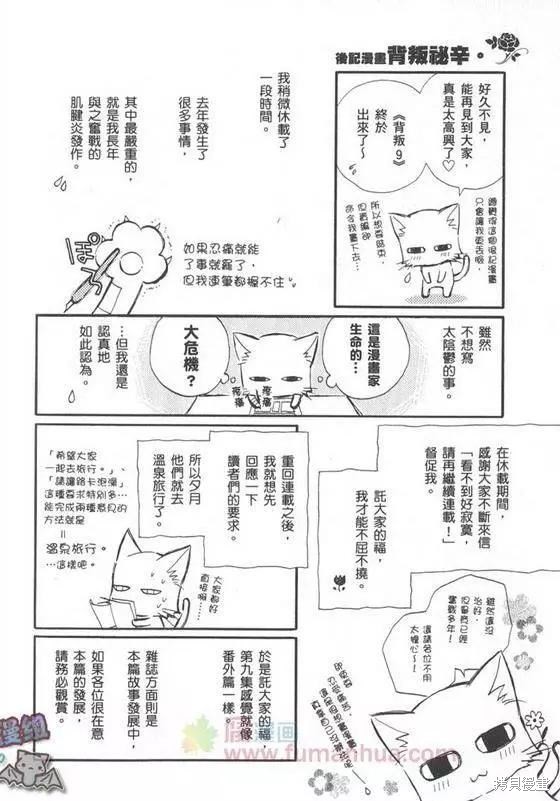 後記漫畫 背叛祕辛。
好久不見，
能再見到大家，
真是太高興了♡
《背叛9》
終於
出來了～
總覺得這個後記漫畫
只會讓我更丟臉，
所以想要結束，
但責編卻
命令我畫下去…
我稍微休載了
一段時間。
去年發生了
很多事情，
其中最嚴重的，
就是我長年
與之奮戰的
肌腱炎發作。
ぽろ
如果忍痛就能
了事就罷了，
但我連筆都握不住。
雖然
不想寫
太陰鬱的事。
這是漫畫家
生命的…
大危機？
疼痛
疼痛
…但我還是
認真地
如此認為。
在休載期間，
感謝大家不斷來信
「看不到好寂寞，
請再繼續連載！」
督促我。
託大家的福，
我才能不屈不撓。
雖然還沒
治好，
但畢竟已經
奮戰多年！
這請各位不用
太擔心～！
重回連載之後，
我就想先
回應一下
讀者們的要求。
所以夕月
他們就去
溫泉旅行了。
「希望大家
一起去旅行。」、
「請讓路卡泡澡」
這種要求特別多…
能完成兩種意見的
方法就是
＝
溫泉旅行。
…這樣吧。
大家都好
直接啊……
於是託大家的福，
第九集感覺就像
番外篇一樣。
雜誌方面則是
本篇故事發展中，
如果各位很在意
本篇的發展，
請務必觀賞。
漫組
漫画
www.fumanhua.com
拷貝漫畫